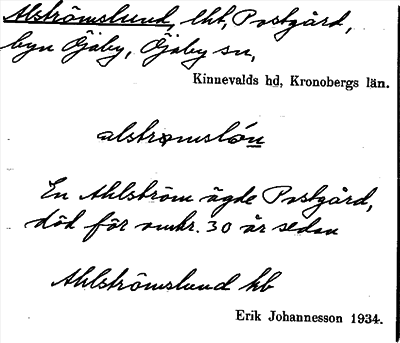 Alströmslund, lht, Postgård,
byn Öjaby, Öjaby sn,
Kinnevalds hd, Kronobergs län.
alstrømslón
En Ahlström ägde Postgård,
död för omkr. 30 år sedan
Ahlströmslund hb
Erik Johannesson 1934.